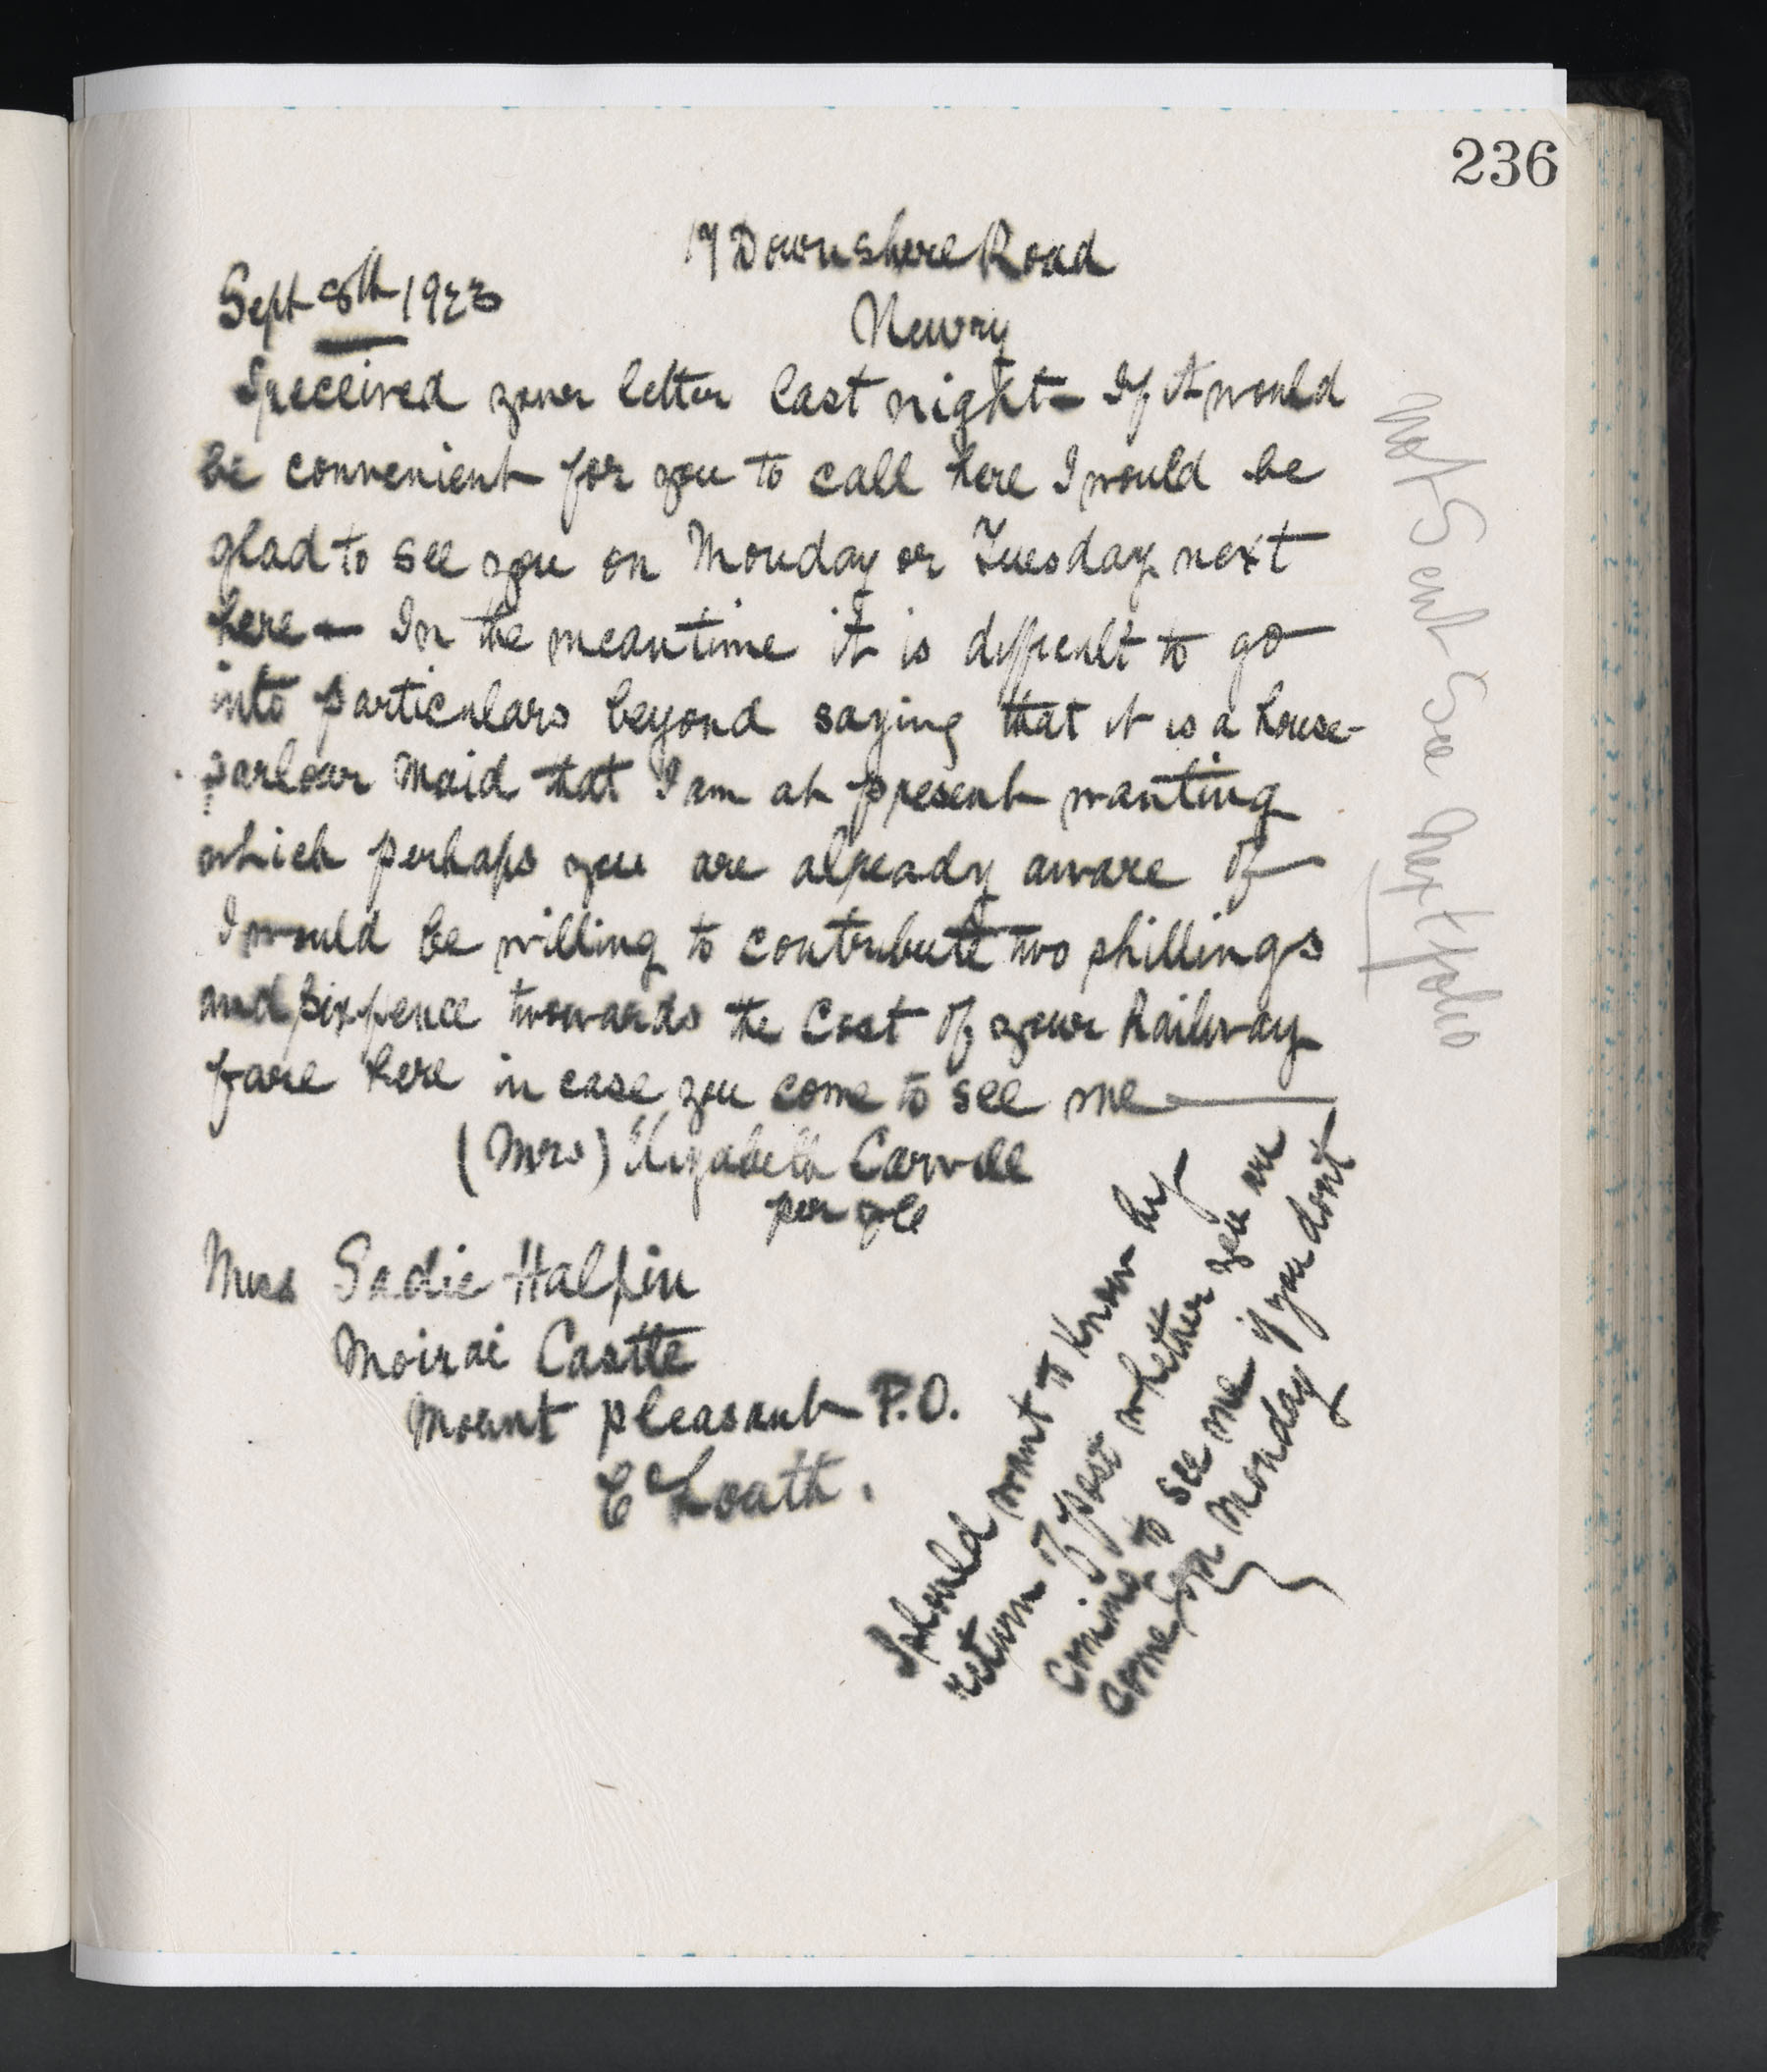 236
17 Downshire Road
Newry
Sept 8th 1923
I received your letter last night - If it would
be convenient for you to call here I would be
glad to see you on Monday or Tuesday next
here - In the meantime it is difficult to go
into particulars beyond saying that it is a house-
parlour maid that I am at present wanting
which perhaps you are already aware of
I would be willing to contribute two shillings
and sixpence towards the cost of your Railway
fare here in case you come to see me
(Mrs) Elizabeth Carvill
per
Miss Sadie Halpin
Moirai Castle
Mount pleasant P.O.
Co Louth.
I should want to know by
return of post whether you are
coming to see me if you don't
come on Monday
Not Sent See next folio